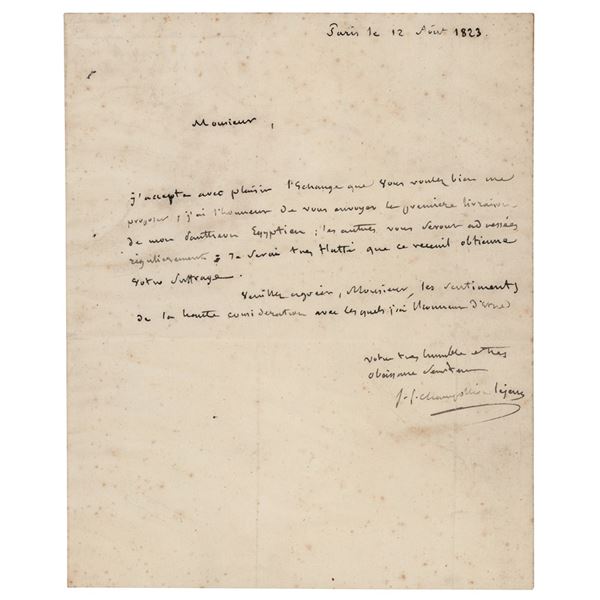 Paris le 12 Août 1823.
Monsieur,
j'accepte avec plaisir l'Echange que vous voulez bien me
proposer; j'ai l'honneur de vous envoyer la première livraison
de mon Panthéon Egyptien; les autres vous seront adressées
régulièrement. Je serai très flatté que ce recueil obtienne
votre suffrage.
Veuillez agréer, Monsieur, les sentiments
de la haute considération avec lesquels j'ai l'honneur d'être
votre très humble et très
obéissant serviteur
J. f. champollion le jeune